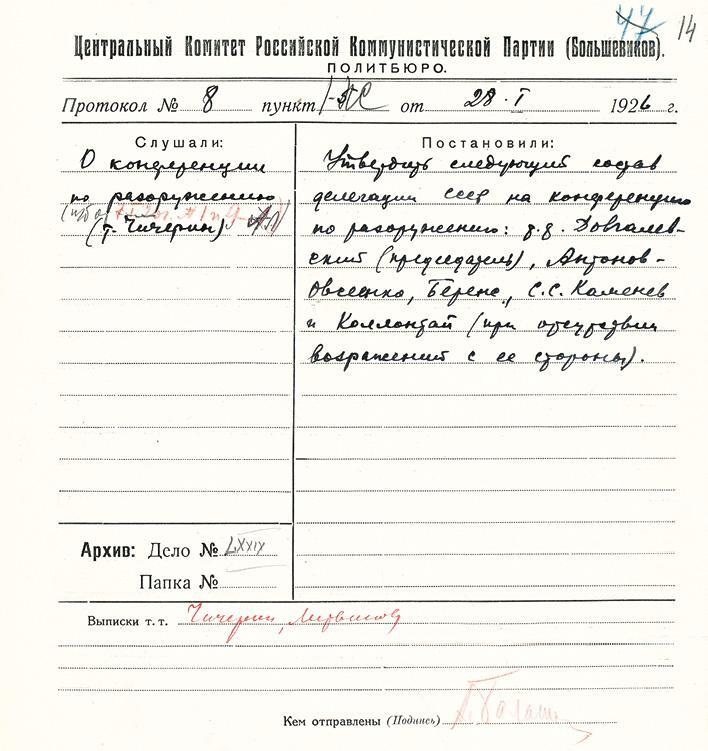 47 14
Центральный Комитет Российской Коммунистической Партии (Большевиков).
ПОЛИТБЮРО.
Протокол № 8 пункт от 28. I 1926 г.
Слушали:
О конференции
по разоружению
(т. Чичерин)
Постановили:
Утвердить следующий состав
делегации СССР на конференцию
по разоружению: т.т. Довгалев-
ский (председатель), Антонов-
Овсеенко, Беренс, С.С. Каменев
и Коллонтай (при отсутствии
возражений с ее стороны).
Архив: Дело № LXXIX
Папка №
Выписки т. т. Чичерин, Литвинов
Кем отправлены (Подпись)